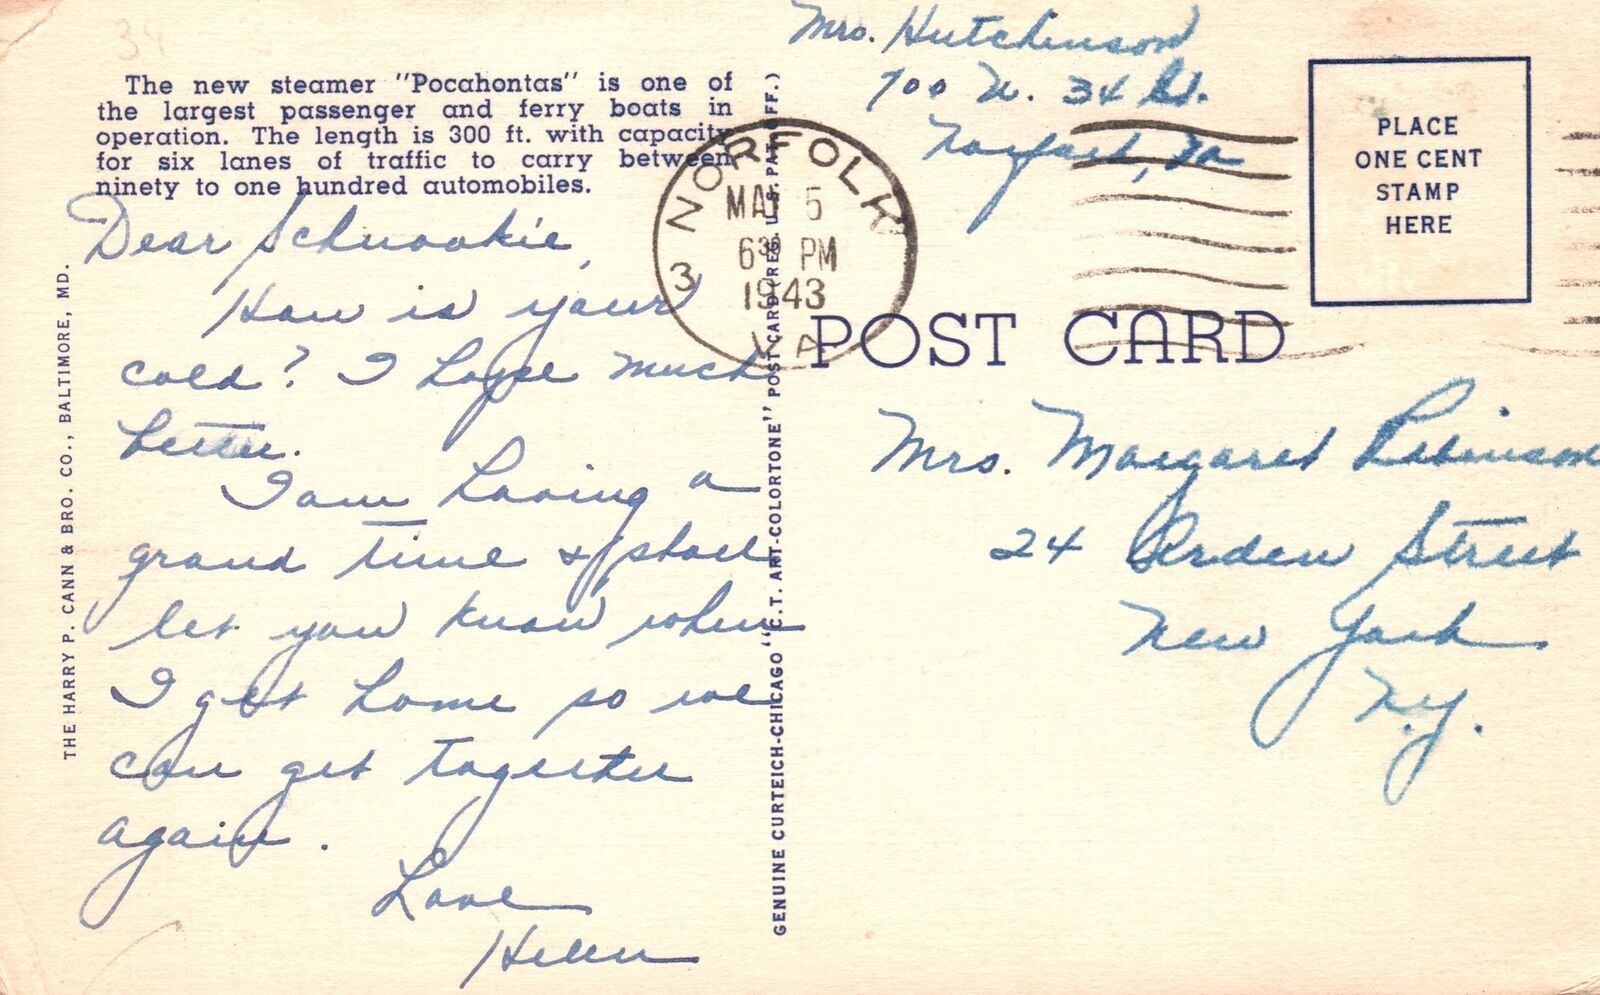 The new steamer "Pocahontas" is one of
the largest passenger and ferry boats in
operation. The length is 300 ft. with capacity
for six lanes of traffic to carry between
ninety to one hundred automobiles.
Dear Schnookie,
How is your
cold? I hope much
better.
I am having a
grand time & shall
let you know when
I get home so we
can get together
again.
Love
Helen
THE HARRY P. CANN & BRO. CO., BALTIMORE, MD.
GENUINE CURTEICH-CHICAGO "C.T. ART-COLORTONE" POST CARD (REG. U.S. PAT. OFF.)
NORFOLK
MAY 5
6 30 PM
1943
3 VA
Mrs. Hutchinson
700 W. 34 St.
Norfolk, Va
PLACE
ONE CENT
STAMP
HERE
POST CARD
Mrs. Margaret Robinson
24 Arden Street
New York
N.Y.